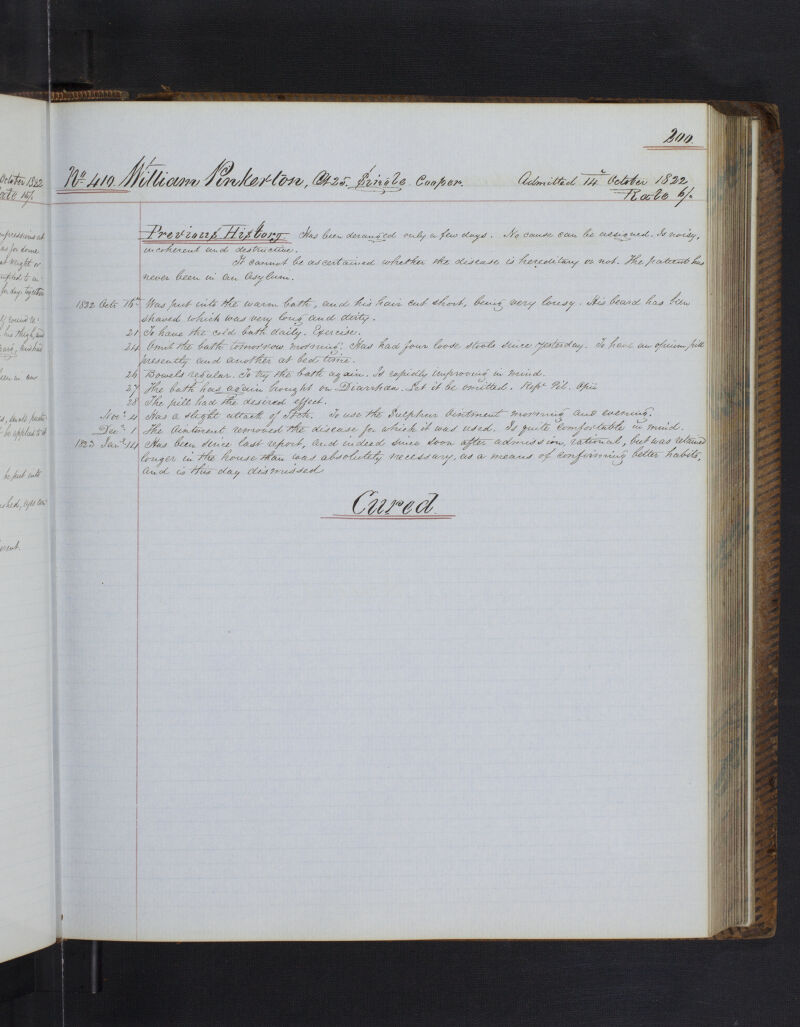 October 1822
Rate 16/.
200.
No. 410. William Pinkerton, Æt 25. Single. Cooper. Admitted 14th October 1822
Rate 6/.
Previous History. Has been deranged only a few days. No cause can be assigned. Is noisy,
incoherent and destructive.
It cannot be ascertained whether the disease is hereditary or not. The patient has
never been in an Asylum.
1822 Octr. 15th Was put into the warm bath, and his hair cut short, being very lousy. His beard has been
shaved which was very long and dirty.
21 To have the cold bath daily. Exercise.
24 Omit the bath tomorrow morning. Has had four loose stools since yesterday. To have an opium pill
presently and another at bed time.
26 Bowels regular. To try the bath again. Is rapidly improving in mind.
27 The bath has again brought on Diarrhœa. Let it be omitted. Rept. Pil. Opii
28 The pill had the desired effect.
Novr. 4 Has a slight attack of Itch. To use the Sulphur Ointment morning and evening.
Decr. 1. The Ointment removed the disease for which it was used. Is quite comfortable in mind.
1823 Jany. 14 Has been since last report, and indeed since soon after admission, rational, but was retained
longer in the house than was absolutely necessary, as a means of confirming better habits,
and is this day dismissed
Cured.